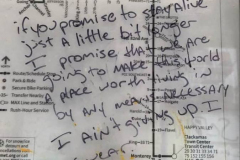 if you promise to stay alive
just a little bit longer
I promise that we are
going to make this world
a place worth living in
by any means necessary
I ain't giving up I
swear.
Route/Schedule
Park & Ride
Secure Bike Parking
Transfer Nearby
MAX Line and Station
Rush-Hour Service
HAPPY VALLEY
Clackamas
Town Center
Transit Center
Monterey